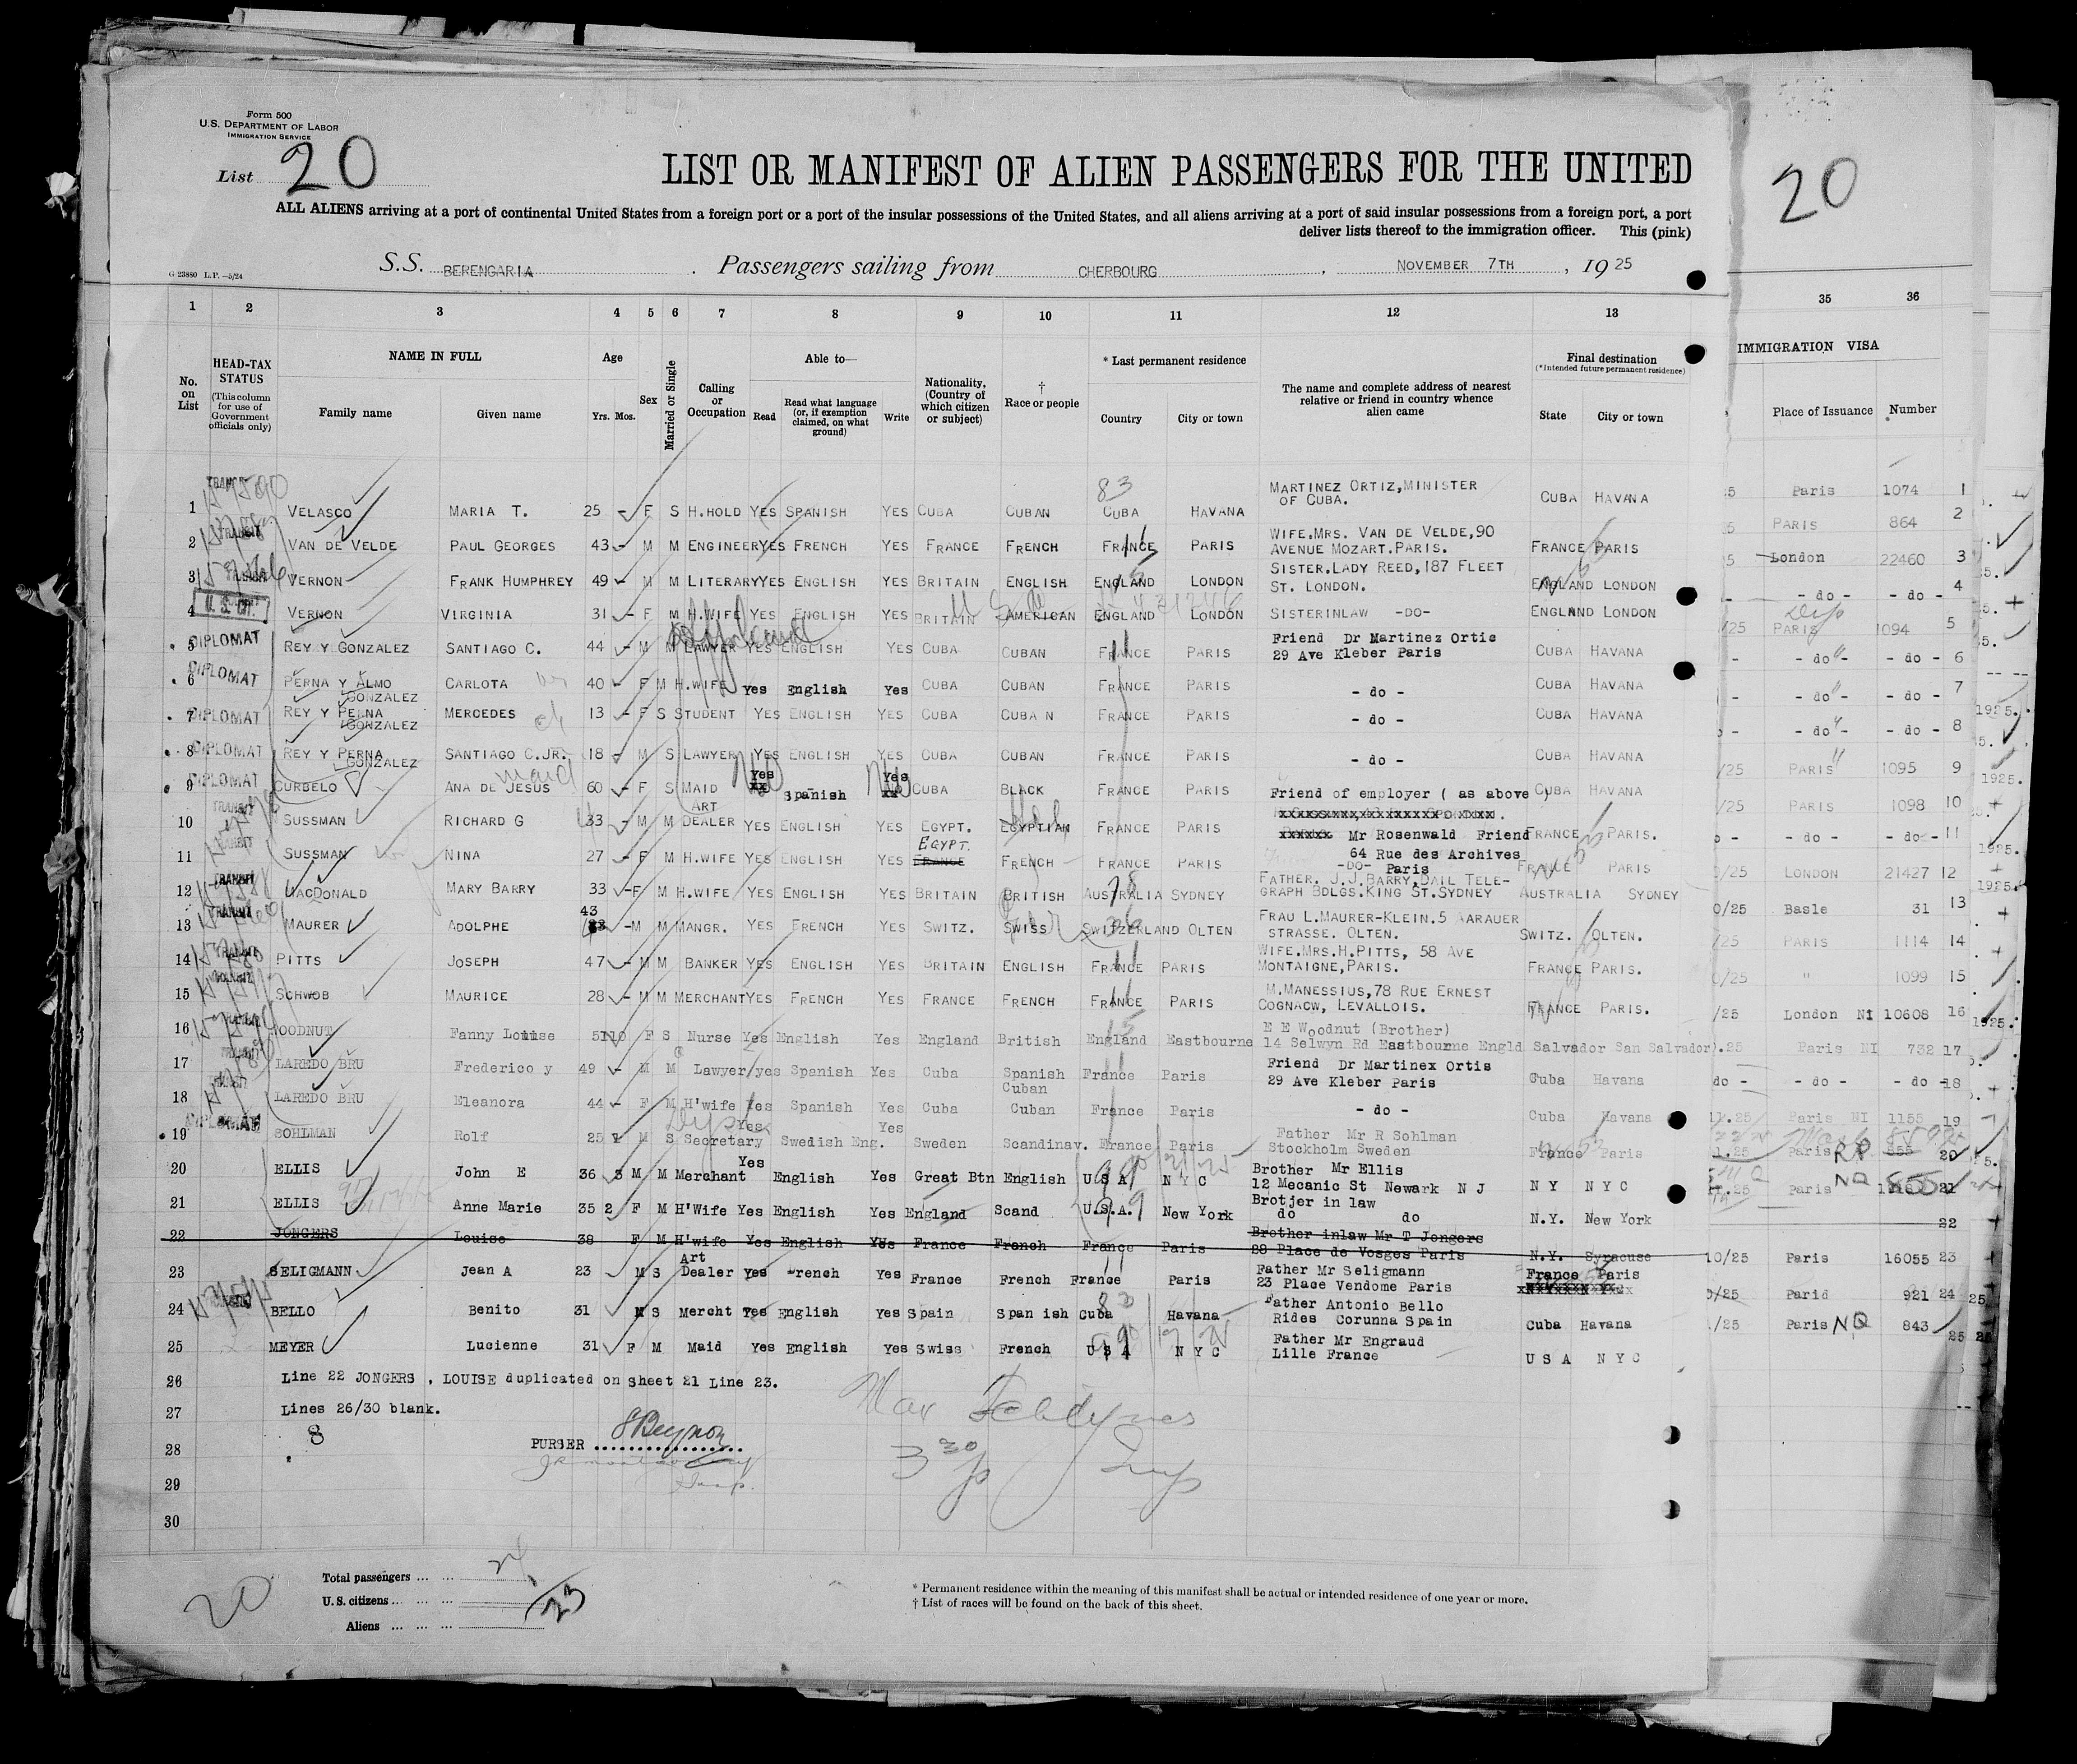 Form 500
U.S. DEPARTMENT OF LABOR
IMMIGRATION SERVICE
List 20
LIST OR MANIFEST OF ALIEN PASSENGERS FOR THE UNITED
20
ALL ALIENS arriving at a port of continental United States from a foreign port or a port of the insular possessions of the United States, and all aliens arriving at a port of said insular possessions from a foreign port, a port
deliver lists thereof to the immigration officer. This (pink)
G 23880 L.P.—5/24
S.S. BERENGARIA. Passengers sailing from CHERBOURG, NOVEMBER 7TH, 1925
1 2 3 4 5 6 7 8 9 10 11 12 13 35 36
No. on List
HEAD-TAX STATUS
(This column for use of Government officials only)
NAME IN FULL
Family name Given name
Age
Yrs. Mos.
Sex
Married or Single
Calling or Occupation
Able to—
Read Read what language (or, if exemption claimed, on what ground) Write
Nationality, (Country of which citizen or subject)
† Race or people
* Last permanent residence
Country City or town
The name and complete address of nearest relative or friend in country whence alien came
Final destination
(*Intended future permanent residence)
State City or town
IMMIGRATION VISA
Place of Issuance Number
1 VELASCO MARIA T. 25 - F S H.HOLD YES SPANISH YES CUBA CUBAN CUBA HAVANA MARTINEZ ORTIZ,MINISTER OF CUBA. CUBA HAVANA Paris 1074 1
2 VAN DE VELDE PAUL GEORGES 43 - M M ENGINEER YES FRENCH YES FRANCE FRENCH FRANCE PARIS WIFE.MRS. VAN DE VELDE,90 AVENUE MOZART.PARIS. FRANCE PARIS PARIS 864 2
3 VERNON FRANK HUMPHREY 49 - M M LITERARY YES ENGLISH YES BRITAIN ENGLISH ENGLAND LONDON SISTER.LADY REED,187 FLEET ST. LONDON. ENGLAND LONDON London 22460 3
4 VERNON VIRGINIA 31 - F M H.WIFE YES ENGLISH YES BRITAIN AMERICAN ENGLAND LONDON SISTERINLAW -DO- ENGLAND LONDON - do - - do - 4
5 DIPLOMAT REY Y GONZALEZ SANTIAGO C. 44 - M M LAWYER YES ENGLISH YES CUBA CUBAN FRANCE PARIS Friend Dr Martinez Ortis 29 Ave Kleber Paris CUBA HAVANA PARIS 1094 5
6 DIPLOMAT PERNA Y ALMO GONZALEZ CARLOTA 40 - F M H.WIFE Yes English Yes CUBA CUBAN FRANCE PARIS - do - CUBA HAVANA - do - - do - 6
7 DIPLOMAT REY Y PERNA GONZALEZ MERCEDES 13 - F S STUDENT YES ENGLISH YES CUBA CUBA N FRANCE PARIS - do - CUBA HAVANA - do - - do - 7
8 DIPLOMAT REY Y PERNA GONZALEZ SANTIAGO C.JR. 18 - M S LAWYER YES ENGLISH YES CUBA CUBAN FRANCE PARIS - do - CUBA HAVANA - do - - do - 8
9 DIPLOMAT CURBELO ANA DE JESUS maid 60 - F S MAID Yes Spanish Yes CUBA BLACK FRANCE PARIS Friend of employer ( as above ) CUBA HAVANA PARIS 1095 9
10 TRANSIT SUSSMAN RICHARD G 33 - M M ART DEALER YES ENGLISH YES EGYPT. EGYPTIAN FRANCE PARIS Mr Rosenwald Friend 64 Rue des Archives Paris FRANCE PARIS. PARIS 1098 10
11 SUSSMAN NINA 27 - F M H.WIFE YES ENGLISH YES EGYPT. FRANCE FRENCH FRANCE PARIS -DO- FRANCE PARIS - do - - do - 11
12 MACDONALD MARY BARRY 33 - F M H.WIFE YES ENGLISH YES BRITAIN BRITISH AUSTRALIA SYDNEY FATHER. J.J.BARRY,DAIL TELEGRAPH BDLGS.KING ST.SYDNEY AUSTRALIA SYDNEY LONDON 21427 12
13 MAURER ADOLPHE 43 - M M MANGR. YES FRENCH YES SWITZ. SWISS SWITZERLAND OLTEN FRAU L.MAURER-KLEIN.5 AARAUER STRASSE. OLTEN. SWITZ. OLTEN. Basle 31 13
14 PITTS JOSEPH 47 - M M BANKER YES ENGLISH YES BRITAIN ENGLISH FRANCE PARIS WIFE.MRS.H.PITTS, 58 AVE MONTAIGNE,PARIS. FRANCE PARIS. PARIS 1114 14
15 SCHWOB MAURICE 28 - M M MERCHANT YES FRENCH YES FRANCE FRENCH FRANCE PARIS M.MANESSIUS,78 RUE ERNEST COGNACW, LEVALLOIS. FRANCE PARIS. " 1099 15
16 WOODNUT Fanny Louise 51 10 F S Nurse Yes English Yes England British England Eastbourne E E Woodnut (Brother) 14 Selwyn Rd Eastbourne Engld Salvador San Salvador London NI 10608 16
17 LAREDO BRU Frederico y 49 - M M Lawyer yes Spanish Yes Cuba Spanish Cuban France Paris Friend Dr Martinex Ortis 29 Ave Kleber Paris Cuba Havana Paris NI 732 17
18 LAREDO BRU Eleanora 44 - F M H'wife Yes Spanish Yes Cuba Cuban France Paris - do - Cuba Havana do - - do - - do -18
19 DIPLOMAT SOHLMAN Rolf 25 M S Secretary Yes Swedish Eng. Yes Sweden Scandinav. France Paris Father Mr R Sohlman Stockholm Sweden France Paris Paris NI 1155 19
20 ELLIS John E 36 M M Merchant Yes English Yes Great Btn English U S A N Y C Brother Mr Ellis 12 Mecanic St Newark N J N Y N Y C Paris 20
21 ELLIS Anne Marie 35 2 F M H'Wife Yes English Yes England Scand U.S.A. New York Brotjer in law do do N.Y. New York Paris 21
22 JONGERS Louise 38 F M H'wife Yes English Yes France French France Paris Brother inlaw Mr T Jongers 28 Place de Vosges Paris N.Y. Syracuse 22
23 SELIGMANN Jean A 23 M S Art Dealer Yes French Yes France French France Paris Father Mr Seligmann 23 Place Vendome Paris France Paris Paris 16055 23
24 BELLO Benito 31 M S Mercht Yes English Yes Spain Span ish Cuba Havana Father Antonio Bello Rides Corunna Spain Cuba Havana Parid 921 24
25 MEYER Lucienne 31 F M Maid Yes English Yes Swiss French U S A N Y C Father Mr Engraud Lille France U S A N Y C Paris NQ 843 25
26 Line 22 JONGERS , LOUISE duplicated on sheet 21 Line 23.
27 Lines 26/30 blank.
8
28 PURSER
29
30
Total passengers ... ... 24
U. S. citizens ... ... ... 1
Aliens ... ... ... 23
20
* Permanent residence within the meaning of this manifest shall be actual or intended residence of one year or more.
† List of races will be found on the back of this sheet.